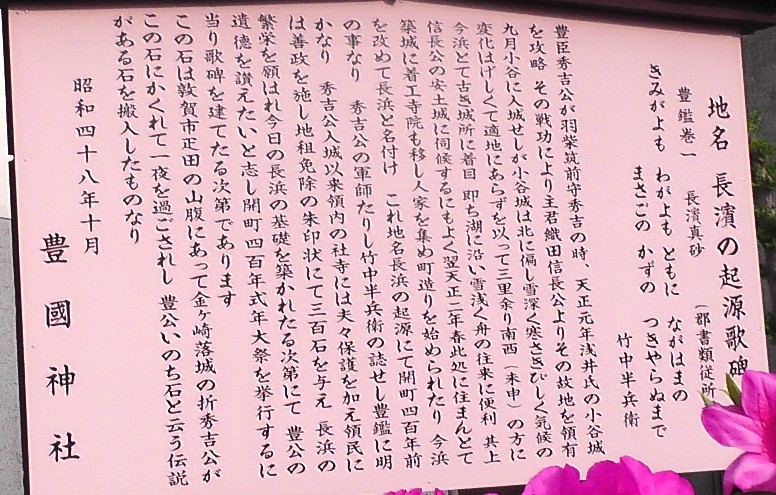 地名 長濱の起源歌碑
豊鑑巻一 長濱真砂 (郡書類従所
きみがよも わがよもともに ながはまの
まさごの かずの つきやらぬまで
竹中半兵衛
豊臣秀吉公が羽柴筑前守秀吉の時、天正元年浅井氏の小谷城
を攻略 その戦功により主君織田信長公よりその故地を領有
九月小谷に入城せしが小谷城は北に偏し雪深く寒さきびしく気候の
変化はげしくて適地にあらずを以って三里余り南西(未申)の方に
今浜とて古き城所に着目 即ち湖に沿い雪浅く舟の往来に便利 其上
信長公の安土城に伺候するにもよく翌天正二年春此処に住まんとて
築城に着工寺院も移し人家を集め町造りを始められたり 今浜
を改めて長浜と名付け これ地名長浜の起源にて開町四百年前
の事なり 秀吉公の軍師たりし竹中半兵衛の誌せし豊鑑に明
かなり 秀吉公入城以来領内の社寺には夫々保護を加え領民に
は善政を施し地租免除の朱印状にて三百石を与え 長浜の
繁栄を願はれ今日の長浜の基礎を築かれたる次第にて 豊公の
遺徳を讃えたいと志し開町四百年式年大祭を挙行するに
当り歌碑を建てたる次第であります
この石は敦賀市疋田の山腹にあって金ヶ崎落城の折秀吉公が
この石にかくれて一夜を過ごされし 豊公いのち石と云う伝説
がある石を搬入したものなり
昭和四十八年十月
豊國神社